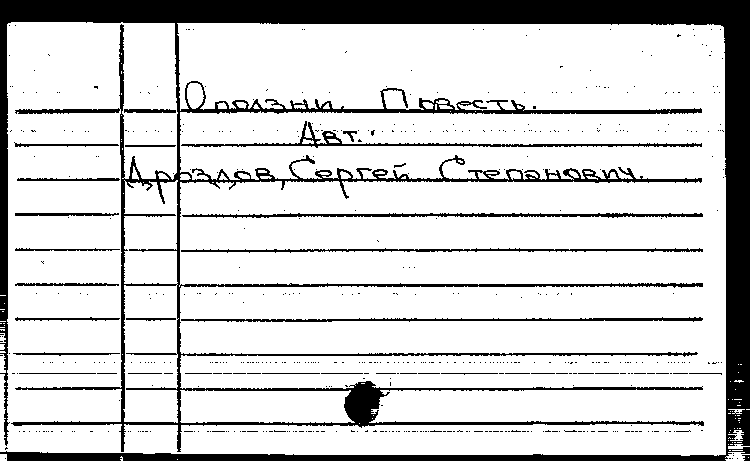 Оползни. Повесть.
Авт.:
Дроздов, Сергей Степанович.